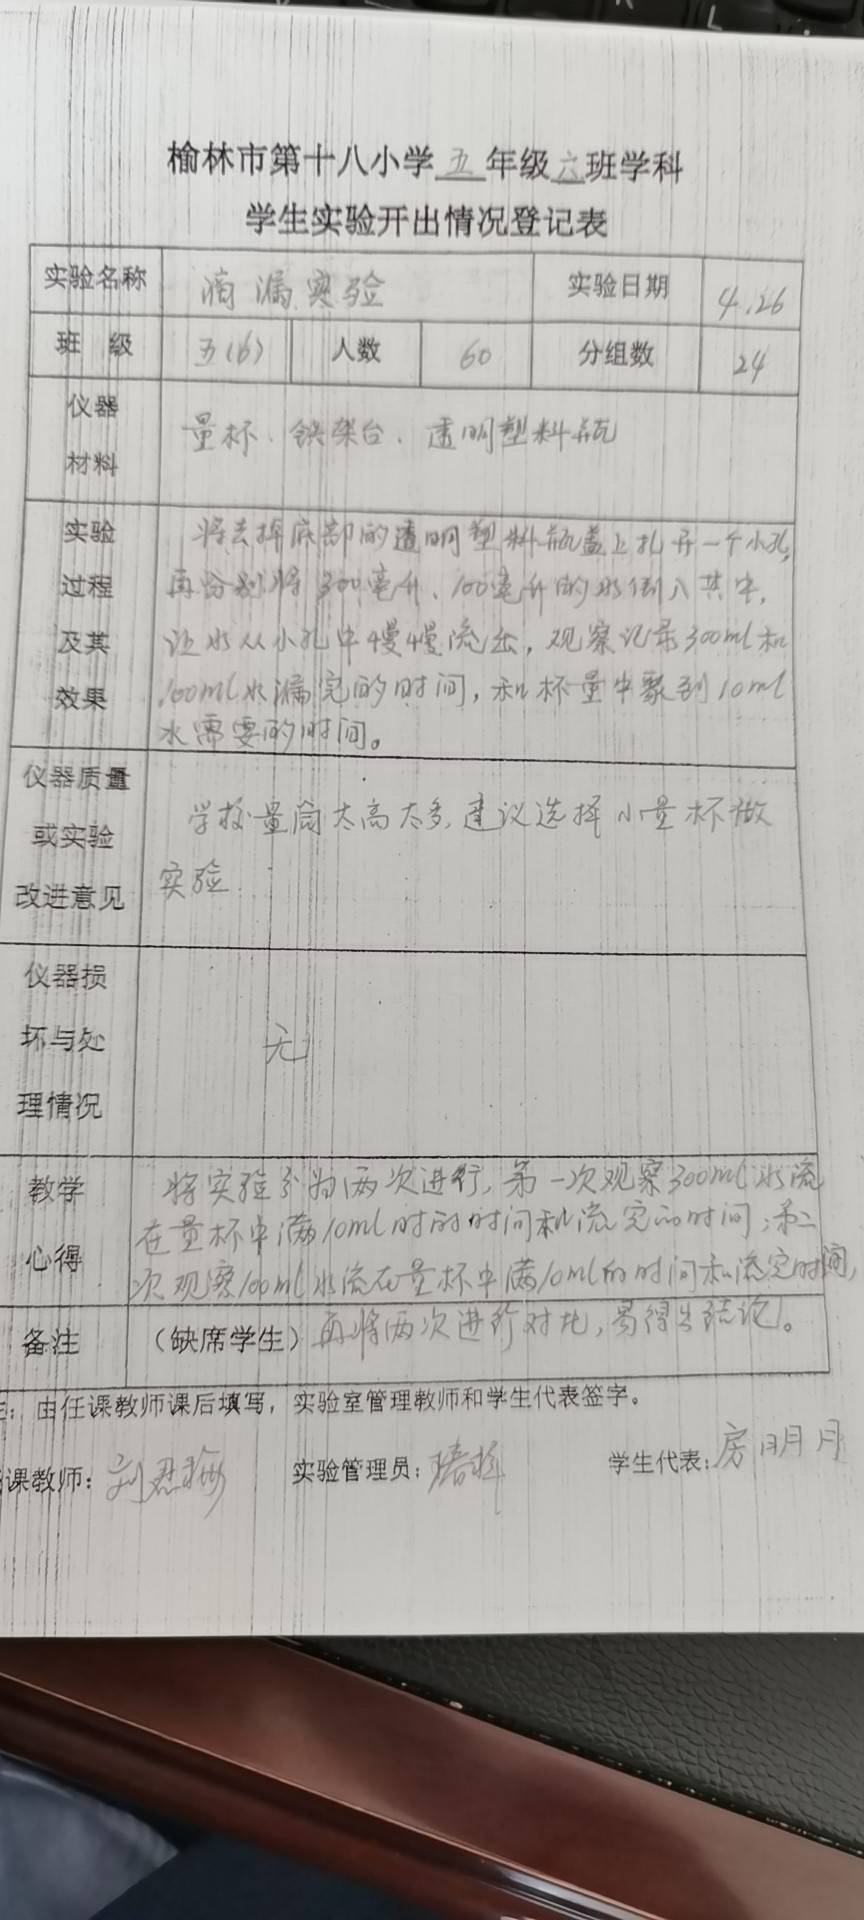 榆林市第十八小学五年级六班学科
学生实验开出情况登记表
实验名称 滴漏实验 实验日期 4.26
班 级 五(6) 人数 60 分组数 24
仪器
材料
量杯、铁架台、透明塑料瓶
实验
过程
及其
效果
将去掉底部的透明塑料瓶盖上扎开一个小孔,
再份别将300毫升、100毫升的水倒入其中,
让水从小孔中慢慢流出,观察记录300ml和
100ml水漏完的时间,和杯量中聚到10ml
水需要的时间。
仪器质量
或实验
改进意见
学校量筒太高太多,建议选择小量杯做
实验
仪器损
坏与处
理情况
无
教学
心得
将实验分为两次进行,第一次观察300ml水流
在量杯中满10ml时的时间和流完的时间;第二
次观察100ml水流在量杯中满10ml的时间和流完时间,
备注 (缺席学生) 再将两次进行对比,易得出结论。
:由任课教师课后填写,实验室管理教师和学生代表签字。
课教师: 实验管理员: 学生代表:房明月